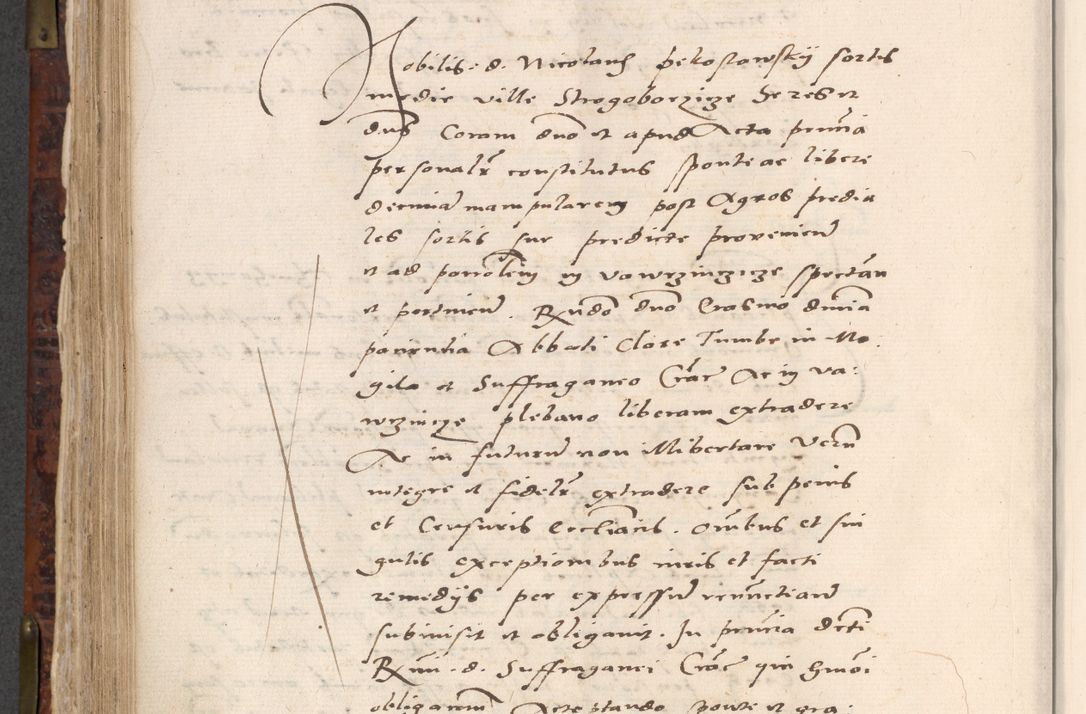 Nobilis. d. Nicolaus pekoslawsky sortis
medie ville Strogoborzicze heres et
dns Coram dno et apud Acta pñtia
personalr constitutus sponte ac libere
decimam manipularem post Agros predia
les sortis sue predicte provenien
et ad parrolem in vawrzinczicze spectan
et pertinen. Rndo dno Erasmo divina
patientia Abbati Clare Tumbe in Mo
gila et Suffraganeo Crac Ac in va:
wrzincze plebano liberam extradere
Ac in futurum non illibertare Verum
integre et fidelr extradere sub penis
et Censuris Ecclianis. Omibus et sin
gulis exceptionibus iuris et facti
remedijs per expressum renunctiand
subiuisit et obligauit. In pñtia dcti
Rmi. d. Suffraganei Crac qui hmoi
obligaonem Acceptando sponte et gra